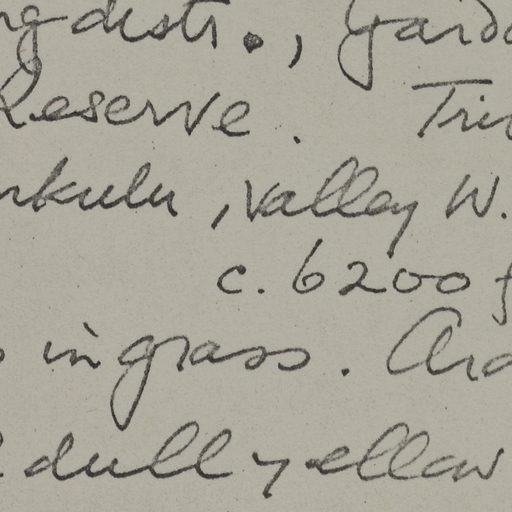 distr., Gard
Reserve. Tri
nkulu, valley W.
c. 6200 f
in grass.
dull yellow